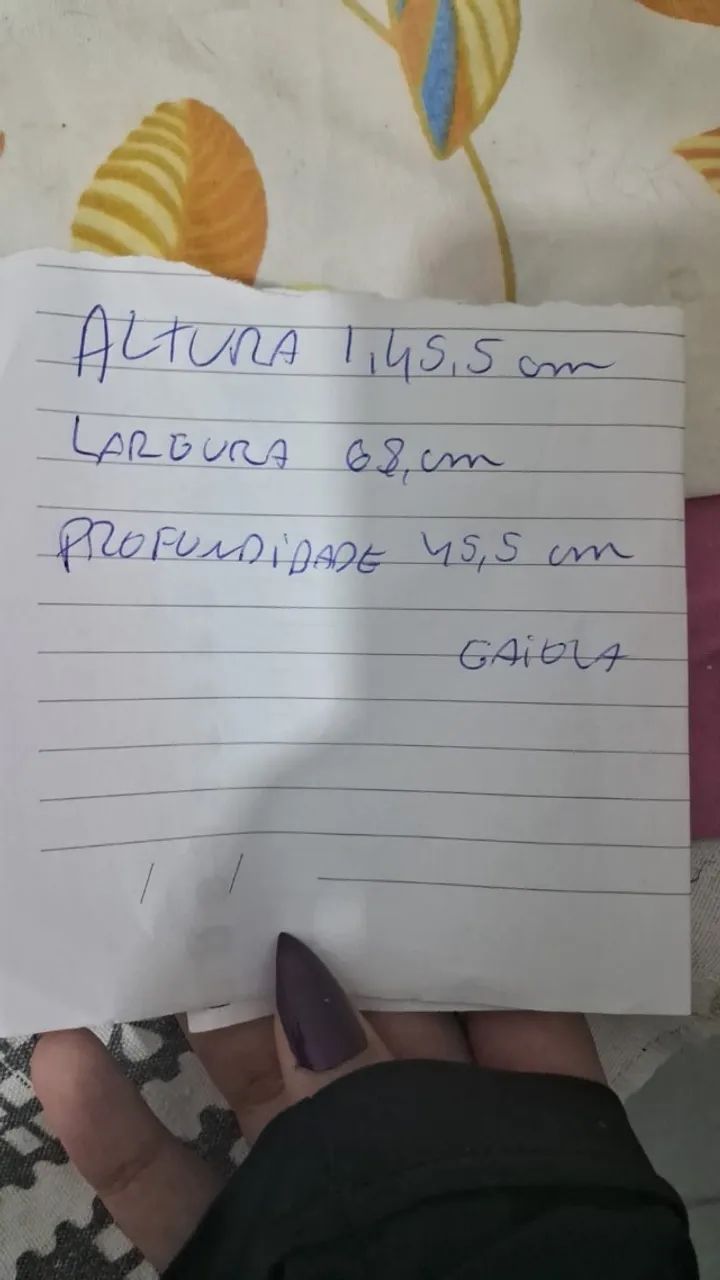 ALTURA 1,45,5 cm
LARGURA 68, cm
PROFUNDIDADE 45,5 cm
GAIOLA
/ /